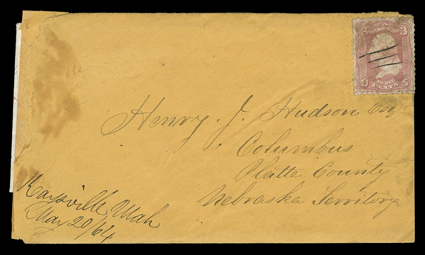 3
Henry J. Hudson Esq
Columbus
Platte County
Nebraska Territory
Kaysville, Utah
May 20/64